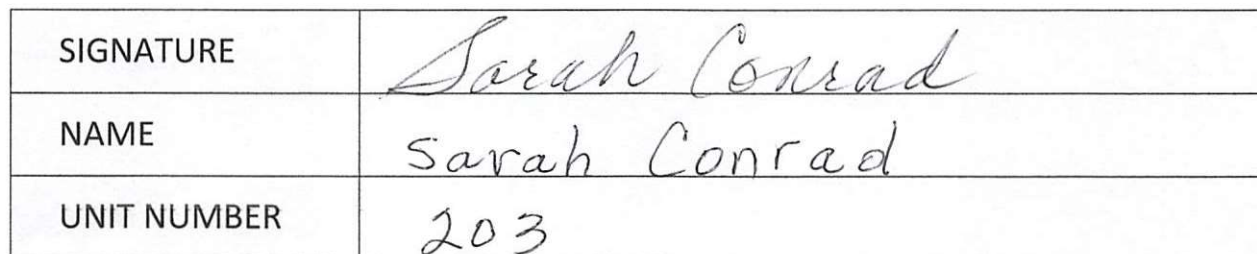 SIGNATURE Sarah Conrad
NAME Sarah Conrad
UNIT NUMBER 203